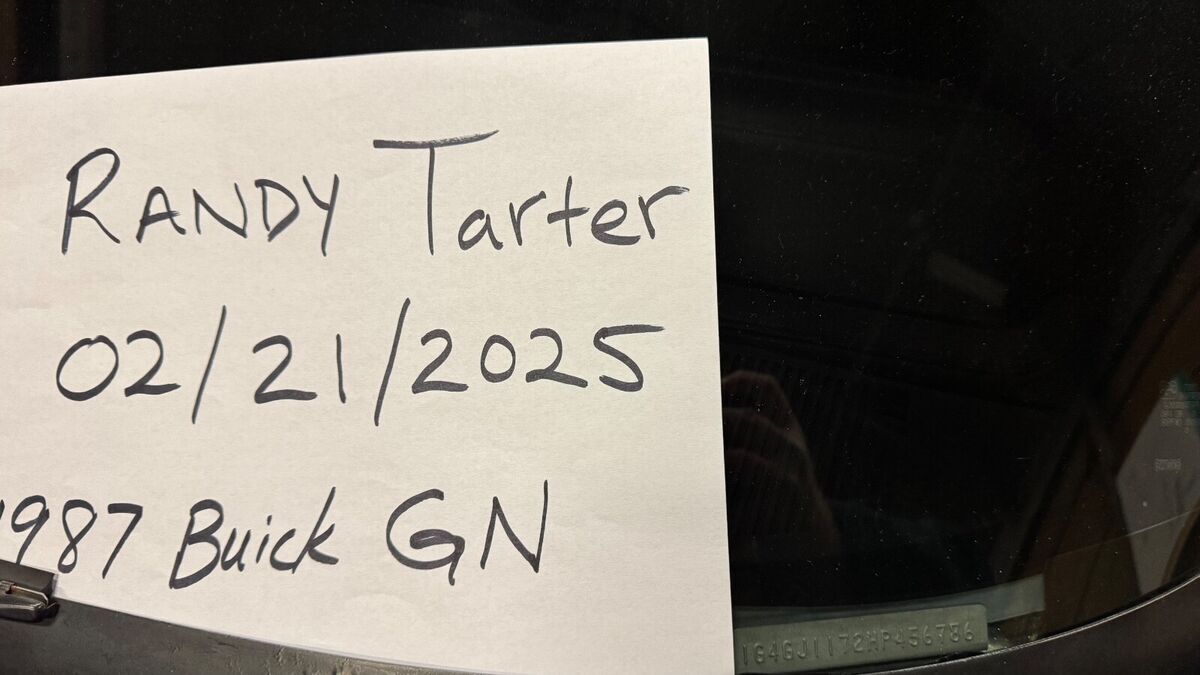 RANDY Tarter
02/21/2025
1987 Buick GN
1G4GJ1172HP456786